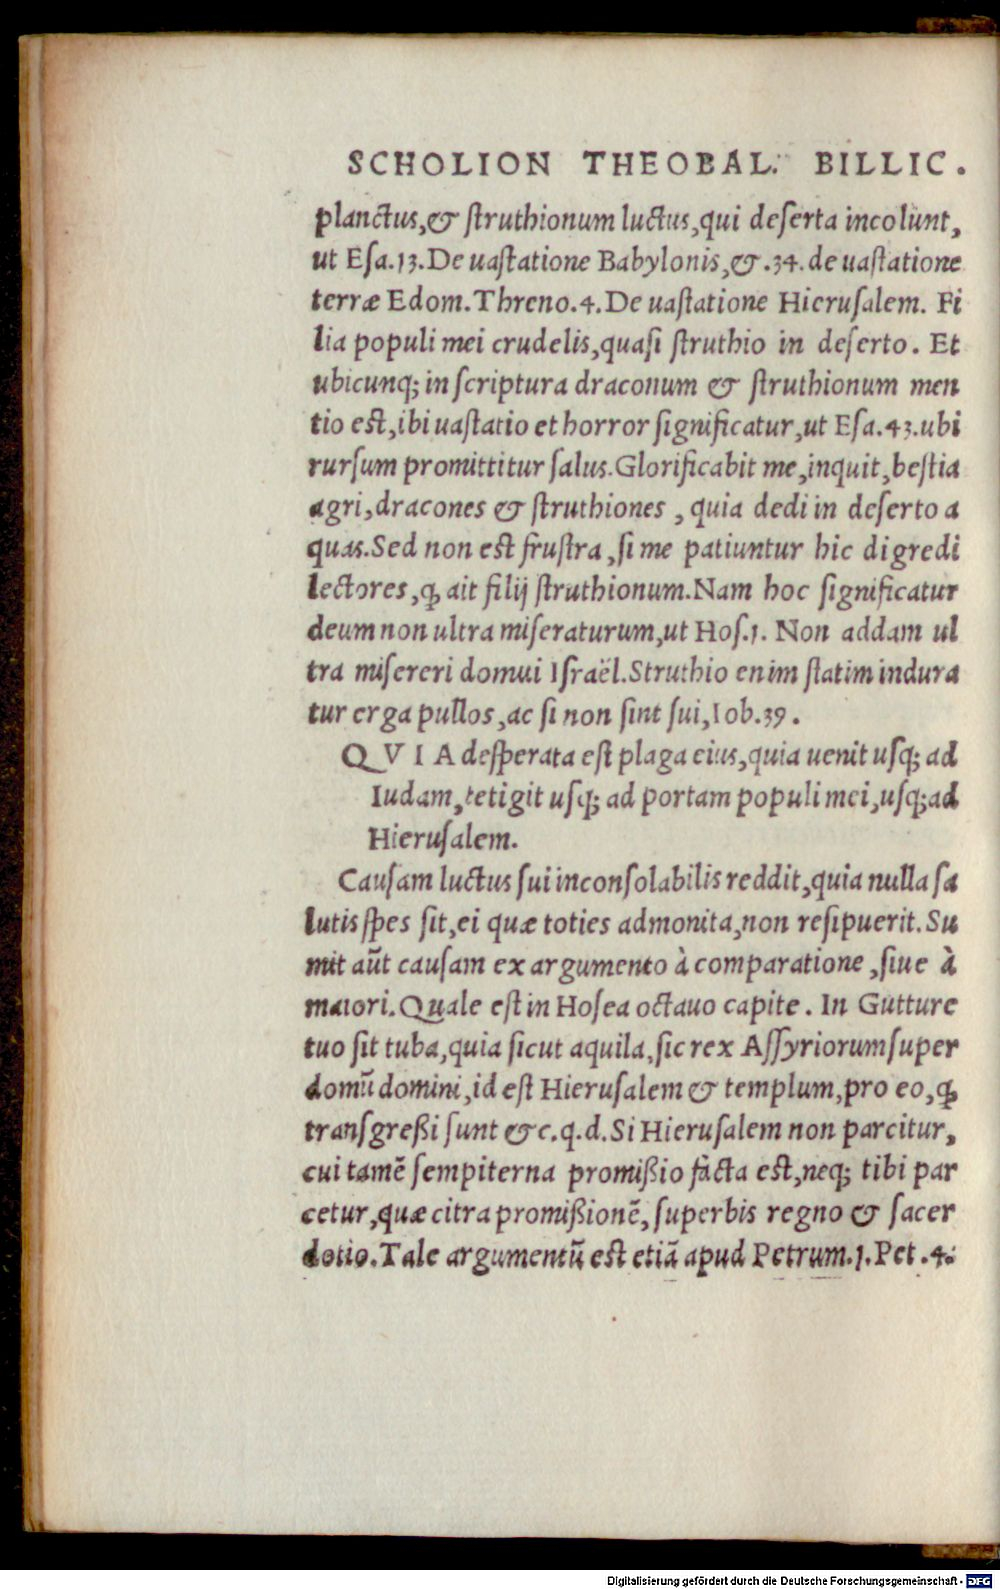 SCHOLION THEOBAL. BILLIC.
planctus,& struthionum luctus,qui deserta incolunt,
ut Esa.13.De uastatione Babylonis,&.34. de uastatione
terræ Edom.Threno.4.De uastatione Hierusalem. Fi
lia populi mei crudelis,quasi struthio in deserto. Et
ubicunq; in scriptura draconum & struthionum men
tio est,ibi uastatio et horror significatur,ut Esa.43.ubi
rursum promittitur salus.Glorificabit me,inquit,bestia
agri,dracones & struthiones , quia dedi in deserto a
quas.Sed non est frustra,si me patiuntur hic digredi
lectores,ꝙ ait filij struthionum.Nam hoc significatur
deum non ultra miseraturum,ut Hos.1. Non addam ul
tra misereri domui Israël.Struthio enim statim indura
tur erga pullos,ac si non sint sui,Iob.39.
QVIA desperata est plaga eius,quia uenit usq; ad
Iudam,tetigit usq; ad portam populi mei,usq;ad
Hierusalem.
Causam luctus sui inconsolabilis reddit,quia nulla sa
lutis spes sit,ei quæ toties admonita,non resipuerit.Su
mit aũt causam ex argumento à comparatione,siue à
maiori.Quale est in Hosea octauo capite. In Gutture
tuo sit tuba,quia sicut aquila,sic rex Assyriorum super
domũ domini,id est Hierusalem & templum,pro eo,ꝙ
transgreßi sunt &c.q.d.Si Hierusalem non parcitur,
cui tamẽ sempiterna promißio facta est,neq; tibi par
cetur,quæ citra promißionẽ,superbis regno & sacer
dotio.Tale argumentũ est etiã apud Petrum.1.Pet.4.
Digitalisierung gefördert durch die Deutsche Forschungsgemeinschaft - DFG